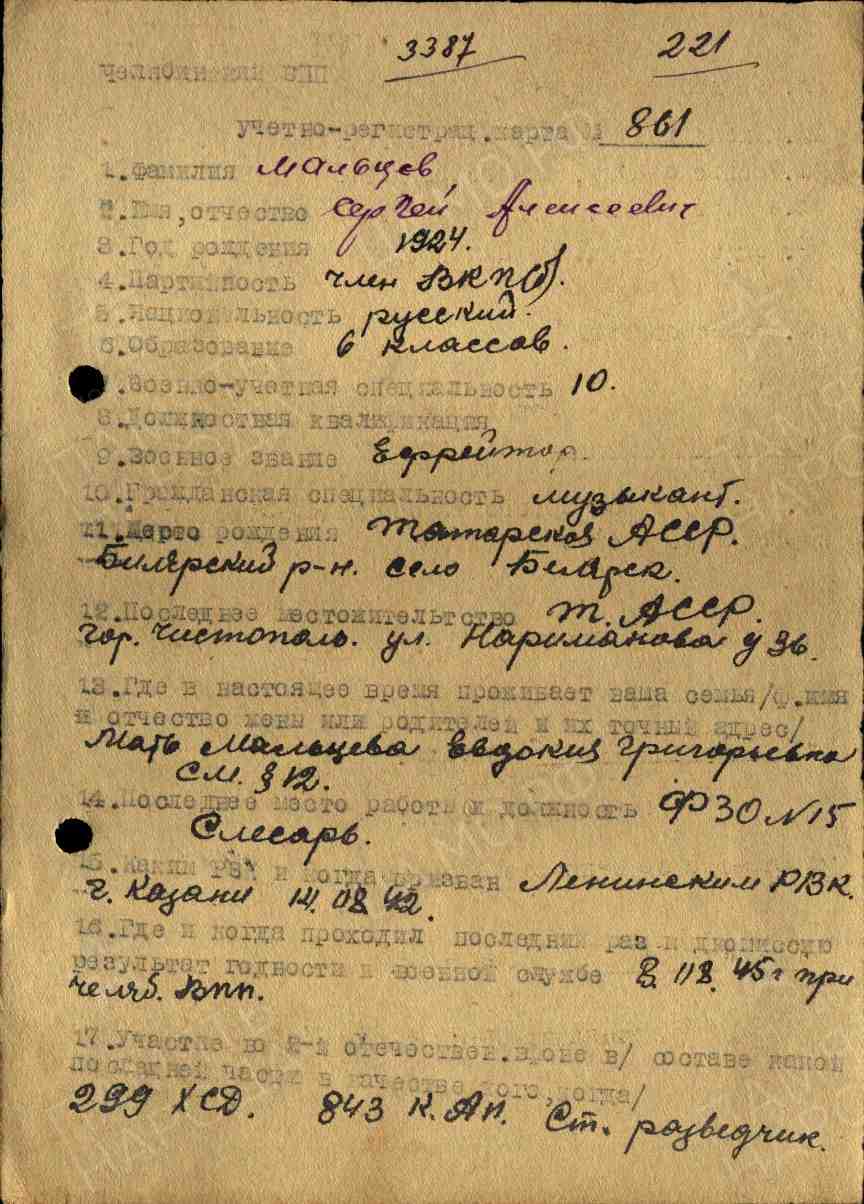 3387 221
Челябинский ВПП
учетно-регистрац.карта № 861
1.Фамилия Мальцев
2.Имя,отчество Сергей Алексеевич
3.Год рождения 1924.
4.Партийность член ВКП(б).
5.Национальность русский.
6.Образование 6 классов.
7.Военно-учетная специальность 10.
8.Должностная квалификация
9.Военное звание Ефрейтор.
10.Гражданская специальность музыкант.
11.Место рождения Татарская АССР.
Билярский р-н. село Билярск.
12.Последнее местожительство Т. АССР.
гор. Чистополь. ул. Нариманова д 36.
13.Где в настоящее время проживает ваша семья/ф.имя
и отчество жены или родителей и их точный адрес/
Мать Мальцева Евдокия Григорьевна
см. § 12.
14.Последнее место работы и должность ФЗО № 15
Слесарь.
15.Каким РВК и когда призван Ленинским РВК.
г. Казани 14.08.42.
16.Где и когда проходил последний раз комиссию
результат годности к военной службе 8.08.45г при
челяб. ВПП.
17.Участие во 2-й отечествен.войне в/ составе какой
последней части в качестве кого,когда/
299 ХСД. 843 К.АП. Ст. разведчик.